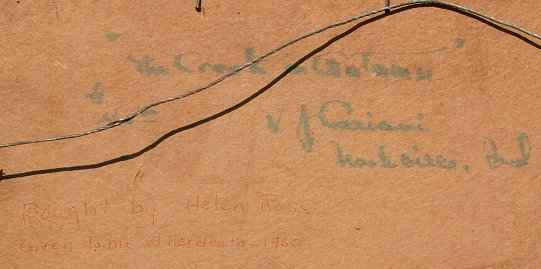 "The Creek in Autumn"
$
V J Cariani
Nashville, Ind
Bought by Helen Ross
Given to me at her death - 1960